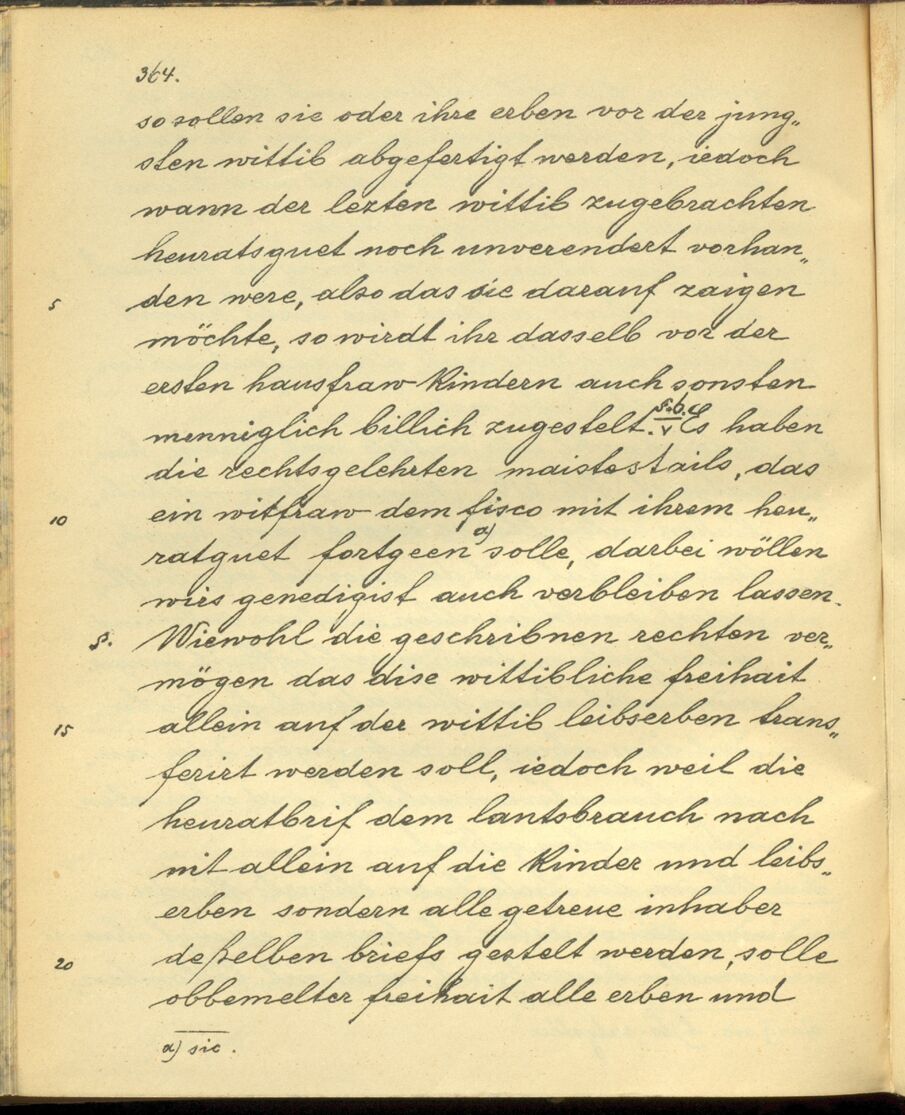 364.
so sollen sie oder ihre erben vor der jung„
sten wittib abgefertigt werden, iedoch
wann der lezten wittib zugebrachten
heuratsguet noch unverendert vorhan„
5 den were, also das sie darauf zaigen
möchte, so wirdt ihr dasselb vor der
ersten hausfraw kindern auch sonsten
menniglich billich zugestelt. §.6. Es haben
die rechtsgelehrten maistestails, das
10 ein witfraw dem fisco mit ihrem heu„
ratguet fortgeen a) solle, darbei wöllen
wirs genedigist auch verbleiben lassen.
§. Wiewohl die geschribnen rechten ver„
mögen das dise wittibliche freihait
15 allein auf der wittib leibserben trans„
ferirt werden soll, iedoch weil die
heuratbrif dem lantsbrauch nach
nit allein auf die kinder und leibs„
erben sondern alle getreue inhaber
20 deßelben briefs gestelt werden, solle
obbemelter freihait alle erben und
a) sic.